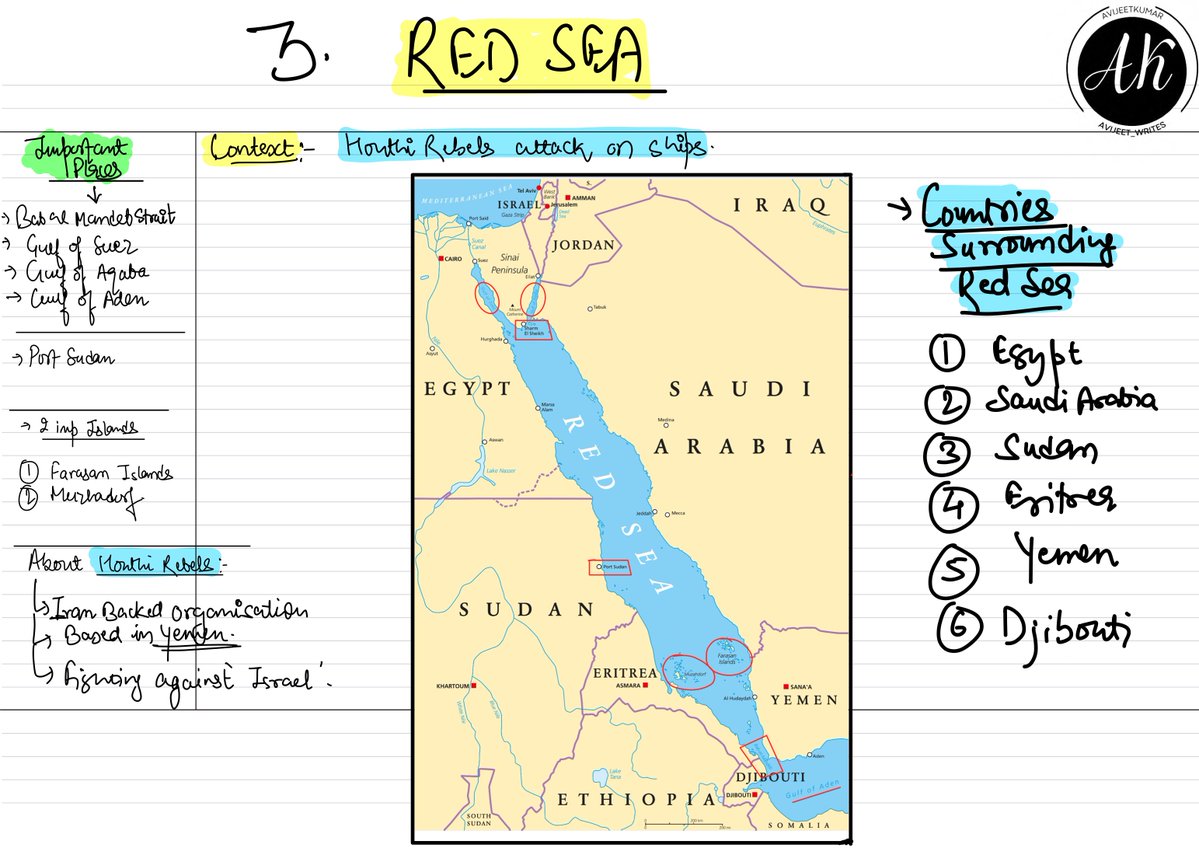 3. RED SEA
AVIJEETKUMAR
AK
AVIJEET_WRITES
Important
Places
→ Bab al Mandeb Strait
→ Gulf of Suez
→ Gulf of Aqaba
→ Gulf of Aden
→ Port Sudan
→ 2 imp Islands
① Farasan Islands
②
About Houthi Rebels:-
↳ Iran Backed organisation
↳ Based in Yemen.
↳ against Israel.
Context:- Houthi Rebels attack on ships.
MEDITERRANEAN SEA
Tel Aviv
West
Bank
AMMAN
ISRAEL
Jerusalem
Gaza Strip
Dead
Sea
IRAQ
Euphrates
Port Said
Suez
Canal
JORDAN
CAIRO
Suez
Sinai
Peninsula
Eilat
Mount
Catherine
Tabuk
Sharm
El Sheikh
Hurghada
Nile
Asyut
EGYPT
SAUDI
ARABIA
Marsa
Alam
Medina
Aswan
Lake Nasser
RED SEA
Jeddah
Mecca
Port Sudan
SUDAN
Farasan
Islands
ERITREA
ASMARA
KHARTOUM
SANA'A
YEMEN
Al-Hudaydah
White Nile
Blue Nile
Aden
DJIBOUTI
DJIBOUTI
Gulf of Aden
Lake
Tana
ETHIOPIA
SOUTH
SUDAN
SOMALIA
200 km
→ Countries
Surrounding
Red Sea
① Egypt
② Saudi Arabia
③ Sudan
④ Eritrea
⑤ Yemen
⑥ Djibouti